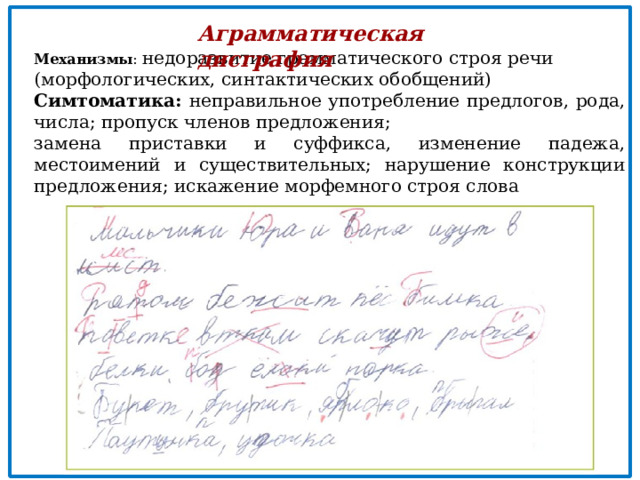 Аграмматическая
дисграфия
Механизмы: недоразвитие грамматического строя речи
(морфологических, синтактических обобщений)
Симтоматика: неправильное употребление предлогов, рода,
числа; пропуск членов предложения;
замена приставки и суффикса, изменение падежа,
местоимений и существительных; нарушение конструкции
предложения; искажение морфемного строя слова
Мальчики Юра и Ваня идут в
лес
Рятом бежыт пёс Бимка
поветке скачут рыжие
белки. норка.
Паутинка, удочка